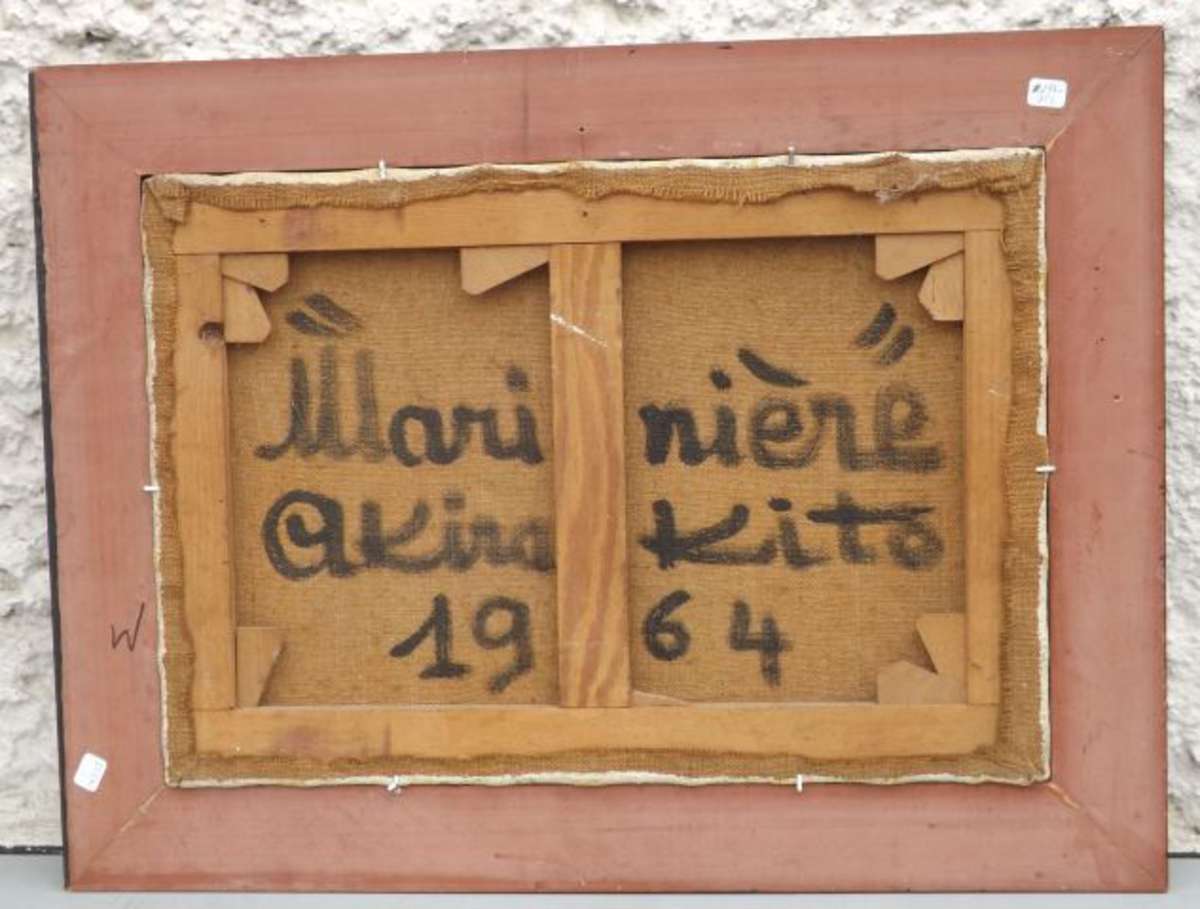 "Marinière"
Akira Kito
1964
W